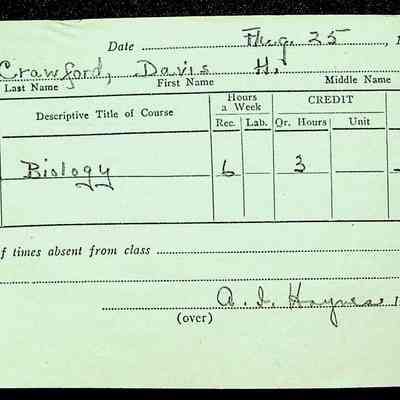 Date Aug. 25, 1
Crawford, Davis H.
Last Name First Name Middle Name
Descriptive Title of Course Hours a Week CREDIT
Rec. Lab. Qr. Hours Unit
Biology 6 3
f times absent from class
A. I. Haynes
(over)